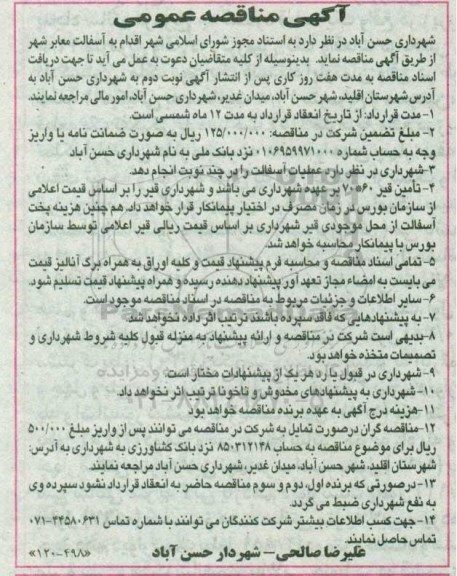 آگهی مناقصه عمومی
شهرداری حسن آباد در نظر دارد به استناد مجوز شورای اسلامی شهر اقدام به آسفالت معابر شهر
از طریق آگهی مناقصه نماید. بدینوسیله از کلیه متقاضیان دعوت به عمل می آید تا جهت دریافت
اسناد مناقصه به مدت هفت روز کاری پس از انتشار آگهی نوبت دوم به شهرداری حسن آباد به
آدرس شهرستان اقلید، شهر حسن آباد، میدان غدیر، شهرداری حسن آباد، امور مالی مراجعه نمایند.
۱- مدت قرارداد: از تاریخ انعقاد قرارداد به مدت ۱۲ ماه شمسی است.
۲- مبلغ تضمین شرکت در مناقصه: ۱۲۵/۰۰۰/۰۰۰ ریال به صورت ضمانت نامه یا واریز
وجه به حساب شماره ۰۱۰۶۹۵۹۹۷۱۰۰۰ نزد بانک ملی به نام شهرداری حسن آباد
۳- شهرداری در نظر دارد عملیات آسفالت را در چند نوبت انجام دهد.
۴- تأمین قیر ۶۰*۷۰ بر عهده شهرداری می باشد و شهرداری قیر را بر اساس قیمت اعلامی
از سازمان بورس در زمان مصرف در اختیار پیمانکار قرار خواهد داد. هم چنین هزینه پخت
آسفالت از محل موجودی قیر شهرداری بر اساس قیمت ریالی قیر اعلامی توسط سازمان
بورس با پیمانکار محاسبه خواهد شد.
۵- تمامی اسناد مناقصه و محاسبه فرم پیشنهاد قیمت و کلیه اوراق به همراه برگ آنالیز قیمت
می بایست به امضاء مجاز تعهد آور پیشنهاد دهنده رسیده و همراه پیشنهاد قیمت تسلیم شود.
۶- سایر اطلاعات و جزئیات مربوط به مناقصه در اسناد مناقصه موجود است.
۷- به پیشنهادهایی که فاقد سپرده باشند ترتیب اثر داده نخواهد شد.
۸- بدیهی است شرکت در مناقصه و ارائه پیشنهاد به منزله قبول کلیه شروط شهرداری و
تصمیمات متخذه خواهد بود.
۹- شهرداری در قبول یا رد هر یک از پیشنهادات مختار است.
۱۰- شهرداری به پیشنهادهای مخدوش و ناخونا ترتیب اثر نخواهد داد.
۱۱- هزینه درج آگهی به عهده برنده مناقصه خواهد بود
۱۲- مناقصه گران درصورت تمایل به شرکت در مناقصه می توانند پس از واریز مبلغ ۵۰۰/۰۰۰
ریال برای موضوع مناقصه به حساب ۸۵۰۳۱۲۱۴۸ نزد بانک کشاورزی به شهرداری به آدرس:
شهرستان اقلید، شهر حسن آباد، میدان غدیر، شهرداری حسن آباد مراجعه نمایند.
۱۳- درصورتی که برنده اول، دوم و سوم مناقصه حاضر به انعقاد قرارداد نشود سپرده وی
به نفع شهرداری ضبط می گردد.
۱۴- جهت کسب اطلاعات بیشتر شرکت کنندگان می توانند با شماره تماس ۴۴۵۸۰۶۳۱-۰۷۱
تماس حاصل نمایند.
علیرضا صالحی - شهردار حسن آباد «۱۲۰-۴۹۸»